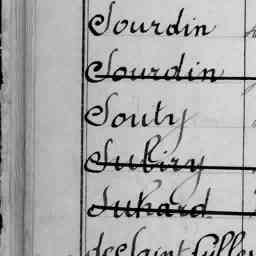 Sourdin
Sourdin
Souty
Subiry
Suhard
de Saint